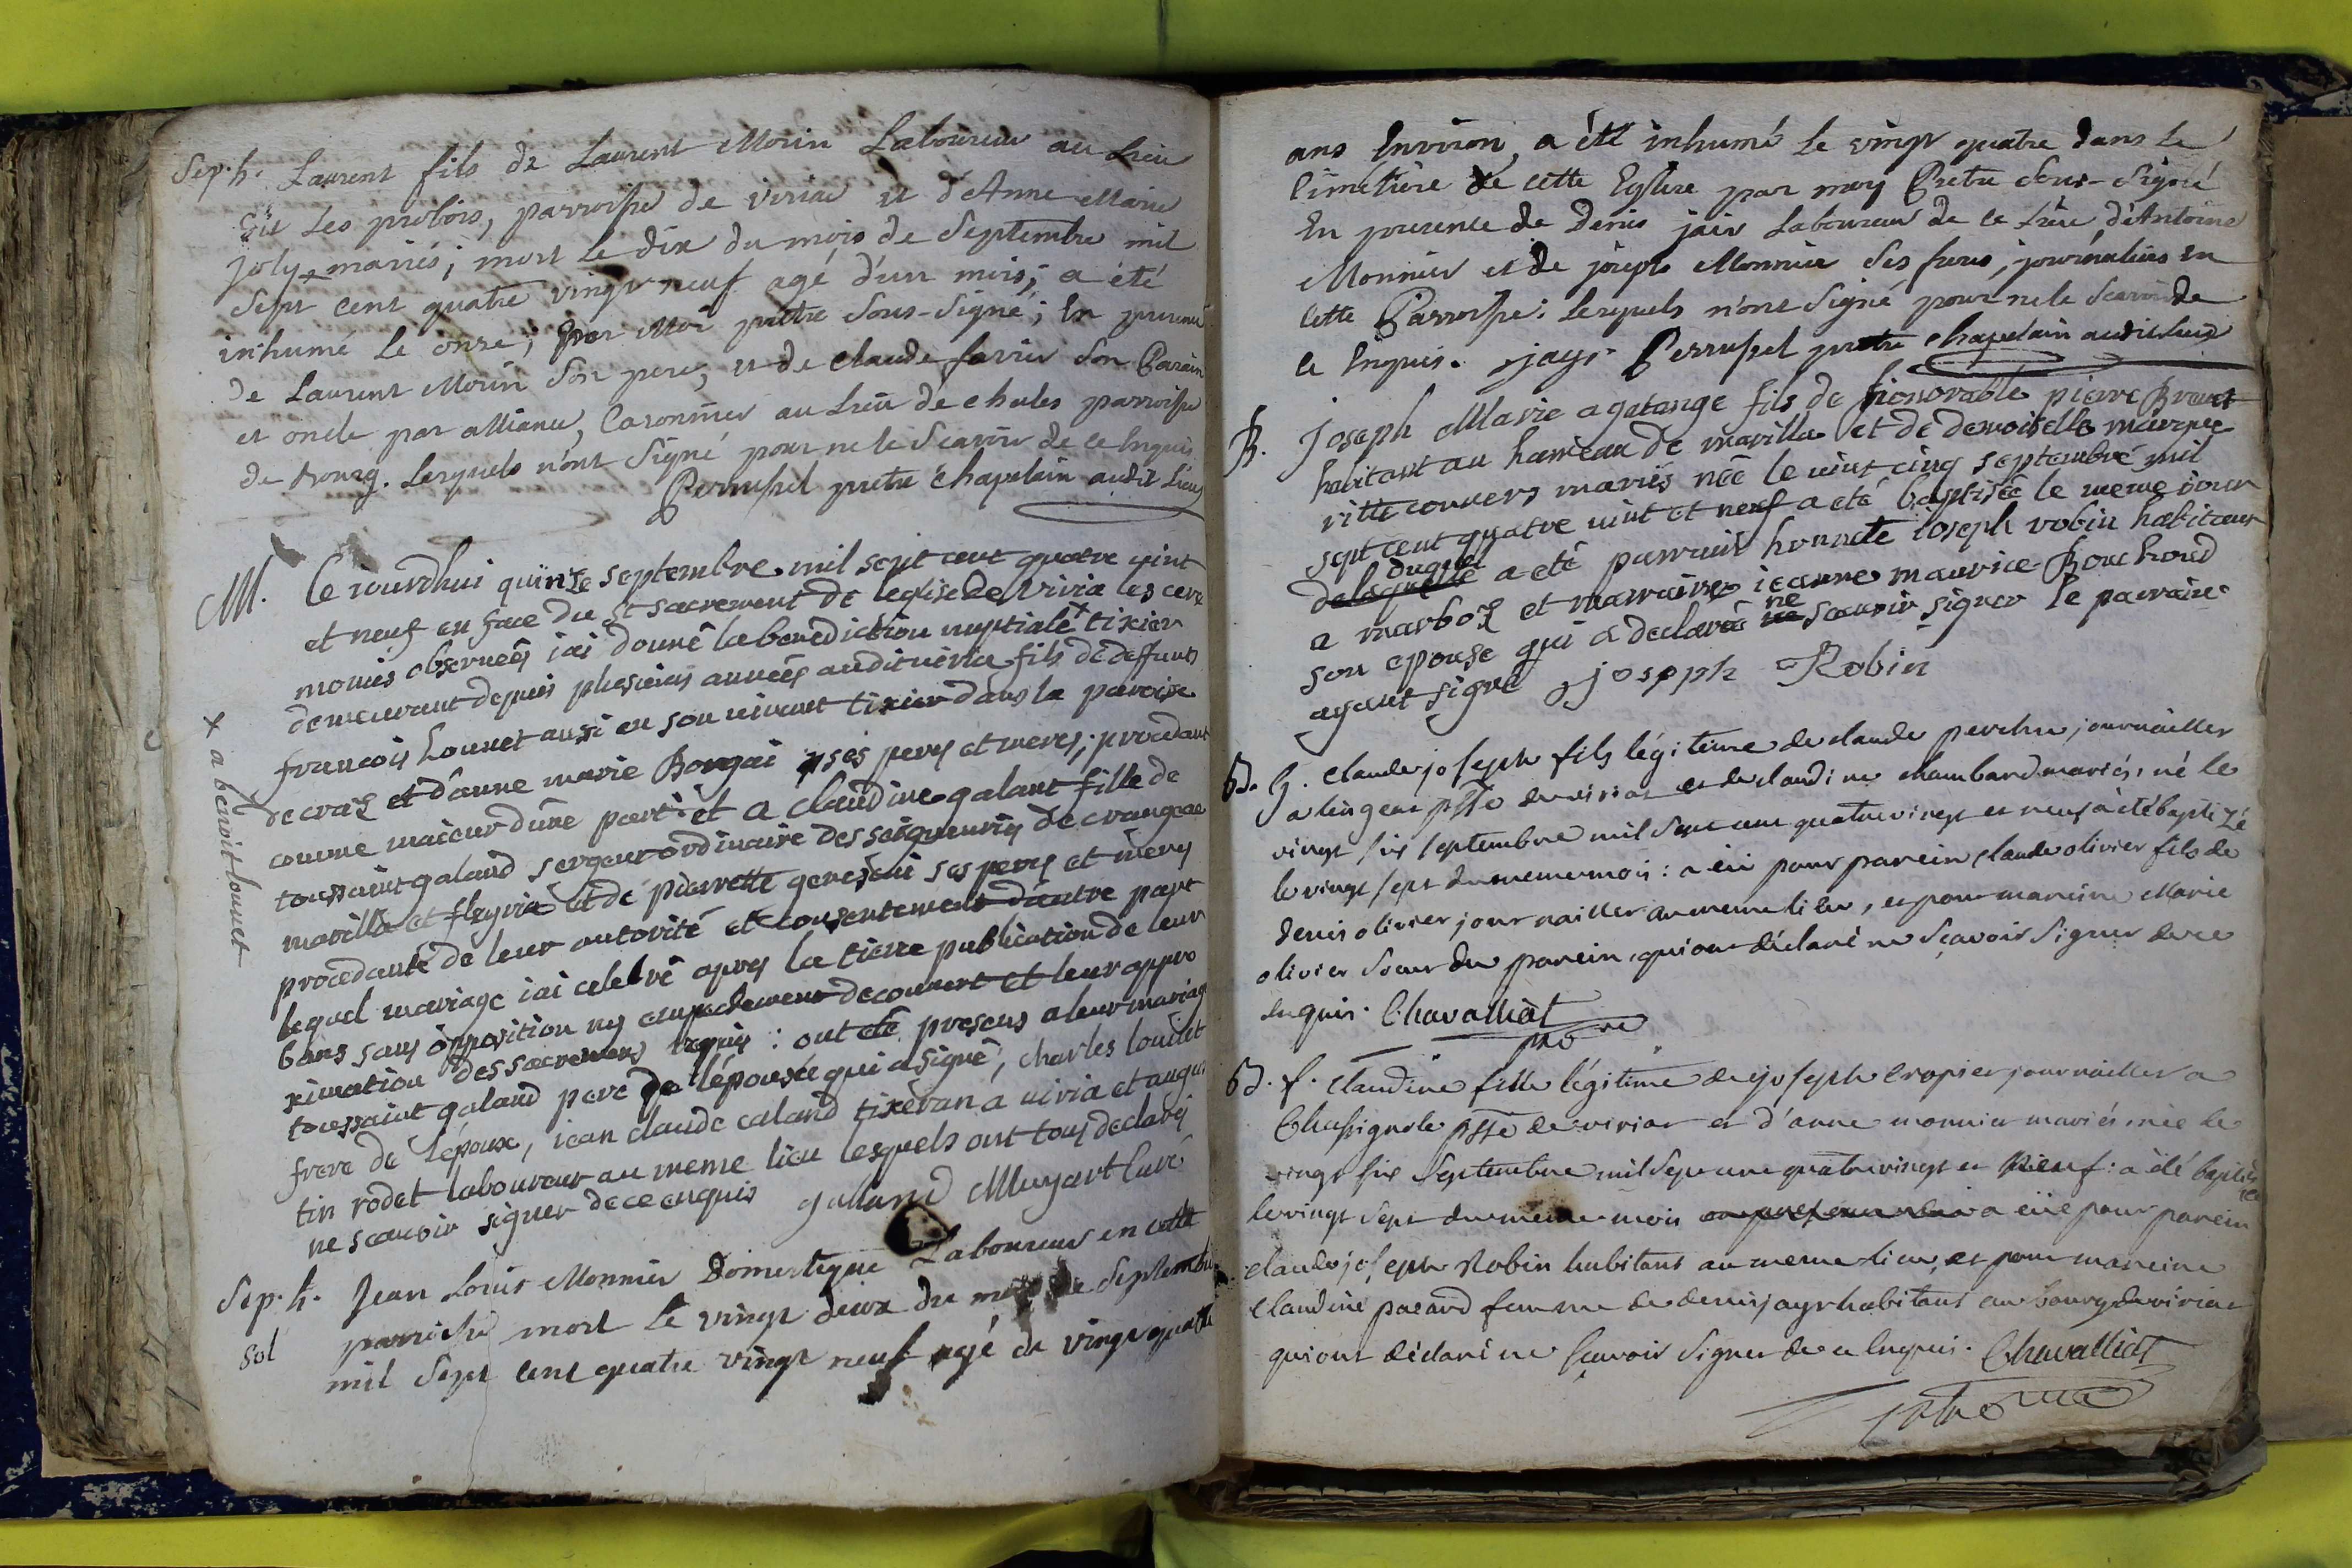 Sep. h. Laurent fils de Laurent Morin Laboureur au Lieu
dit Les probois, parroisse de viriac et d'Anne Marie
joly + mariés; mort le dix du mois de Septembre mil
Sept cent quatre vingt neuf agé d'un mois; a été
inhumé le onze; par Moi prêtre Sous-Signé; En presence
de Laurent Morin Son pere, et de Claude favier Son Parain
et oncle par alliance, au Lieu de chales parroisse
de bourg. Lesquels n'ont Signé pour ne le Scavoir de ce Enquis
Perrussel pretre Chapelain audit Lieu
M. Ce iourdhui quinze septembre mil sept cent quatre vint
et neuf en face du St sacrement de leglise de viria les cere
monies observées iai donné la benediction nuptiale + tixier
demeurant depuis plusieurs années audit viria fils de deffunts
francois Lounet aussi en son vivant tixier dans la paroisse
de cras et d'anne marie Bongai ses peres et meres, procedant
comme maieur dûne part et a claudine galant fille de
toussaint galand sergent ordinaire des seigneuries de crangeac
marilla et fleyria et de pierrette ses peres et mères
procedante de leur autorité et consentement d'autre part
lequel mariage iai celebré apres la tierce publication de leur
bans sans opposition ny empechement decouvert et leur appro
ximation des sacremens requis : ont eté presens a leur mariage
toussaint galand pere de l'épousée qui a signé, charles lounet
frere de l'époux, iean claude caland tixeran a viria et augus
tin rodet laboureur au meme lieu lesquels ont tous declarés
ne scavoir signer de ce enquis galland Muyart Curé
+ a benoit lounet
Sep. h. Jean Louis Monnier Domestique Laboureur en cette
Sol parroisse mort le vingt deux du mois de Septembre
mil Sept cent quatre vingt neuf agé de vingt quatre
ans Environ, a été inhumé le vingt quatre dans le
Cimetiere de cette Eglise par moy Pretre Sous-Signé
En presence de Denis jair Laboureur de ce Lieu, d'Antoine
Monnier et de joseph Monnier Ses freres, journaliers en
cette Parroisse; Lesquels n'ont Signé pour ne le Scavoir de
ce Enquis. jayr Perrussel pretre chapelain audit lieu
B. Joseph Marie agatange fils de honorable pierre Brevet
habitant au hameau de marilla et de demoiselle margue
ritte convers mariés née le vint cinq septembre mil
sept cent quatre vint et neuf a eté baptisée le meme iour
de laquelle duquel a eté parrain honnete ioseph robin habitant
a marboz et marraine ieanne maurice Bouchoud
son epouse qui a declaré ne scavoir signer le parrain
ayant signé joseph Robin
B. g. Claude joseph fils légitime de claude perchu journailler
a lingeat psse de viriat et de claudine chambard mariés, né le
vingt six septembre mil Sept cent quatre vingt et neuf a été baptizé
le vingt sept du meme mois : a eü pour parein claude olivier fils de
denis olivier journailler au meme lieu, et pour mareine Marie
olivier soeur du parein, qui ont déclaré ne Sçavoir Signer de ce
enquis. Chavalliat
pro re
B. f. Claudine fille légitime de joseph cropier journailler a
Chassignole psse de viriat et d'anne monnier mariés, née le
vingt six Septembre mil Sept cent quatre vingt et Neuf : a été baptisée
le vingt Sept du meme mois a eüe pour parein
claude joseph Robin habitant au meme lieu, et pour mareine
Claudine pacand femme de denis jayr habitant au bourg de viriat
qui ont déclaré ne sçavoir Signer de ce Enquis. Chavalliat